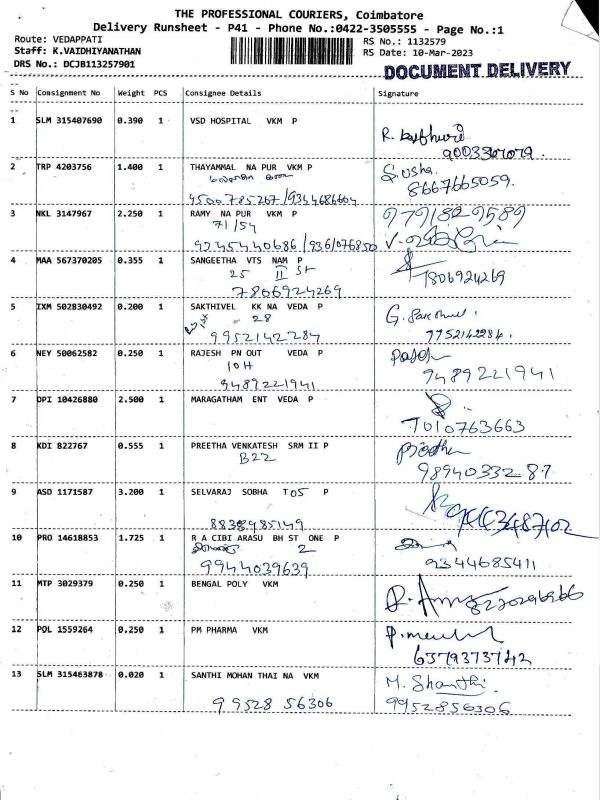 THE PROFESSIONAL COURIERS, Coimbatore
Delivery Runsheet - P41 - Phone No.:0422-3505555 - Page No.:1
Route: VEDAPPATI
RS No.: 1132579
Staff: K.VAIDHIYANATHAN
RS Date: 10-Mar-2023
DRS No.: DCJB113257901
DOCUMENT DELIVERY
S No Consignment No Weight PCS Consignee Details Signature
1 SLM 315407690 0.390 1 VSD HOSPITAL VKM P
2 TRP 4203756 1.400 1 THAYAMMAL NA PUR VKM P S. usha
8667665059.
9500785267/9344686604
3 NKL 3147967 2.250 1 RAMY NA PUR VKM P
71/54
9245440686/9361076850
4 MAA 567370205 0.355 1 SANGEETHA VTS NAM P
25 II St
7806924269 7806924269
5 IXM 502830492 0.200 1 SAKTHIVEL KK NA VEDA P
- 28
9952142284
6 NEY 50062582 0.250 1 RAJESH PN OUT VEDA P
10H
9489221941 9489221941
7 DPI 10426880 2.500 1 MARAGATHAM ENT VEDA P
7010763663
8 KDI 822767 0.555 1 PREETHA VENKATESH SRM II P
B22 9894033287
9 ASD 1171587 3.200 1 SELVARAJ SOBHA TOS P
8838485149
10 PRO 14618853 1.725 1 R A CIBI ARASU BH ST ONE P
2
9944039639 9344685411
11 MTP 3029379 0.250 1 BENGAL POLY VKM
12 POL 1559264 0.250 1 PM PHARMA VKM
6379373742
13 SLM 315463878 0.020 1 SANTHI MOHAN THAI NA VKM M. Shanthi.
99528 56306 9952856306